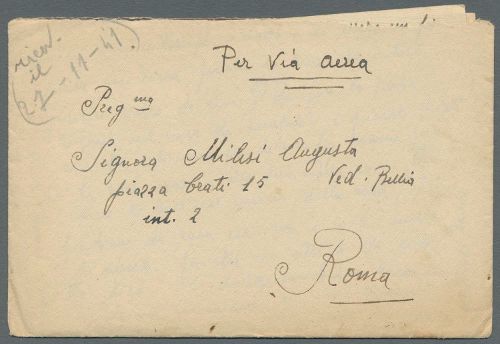 ricev.
il
27-11-41
Per Via aerea
Preg.ma
Signora Milesi Augusta
piazza Crati 15 Ved. Bellia
int. 2
Roma